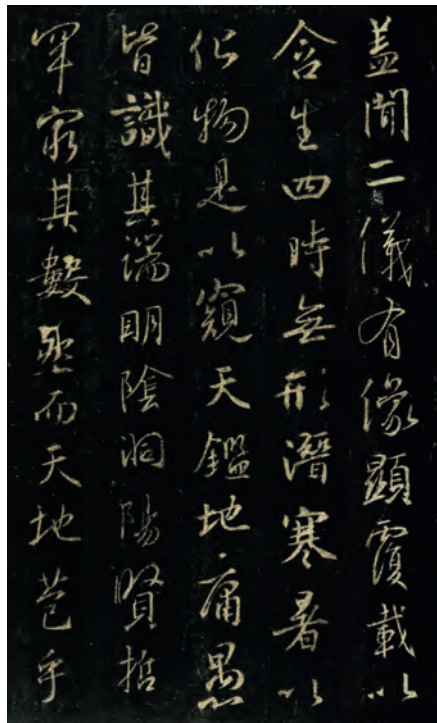 盖聞二儀有像顯覆載以
含生四時無形潛寒暑以
化物是以窺天鑑地庸愚
皆識其端明陰洞陽賢哲
罕窮其數然而天地苞乎